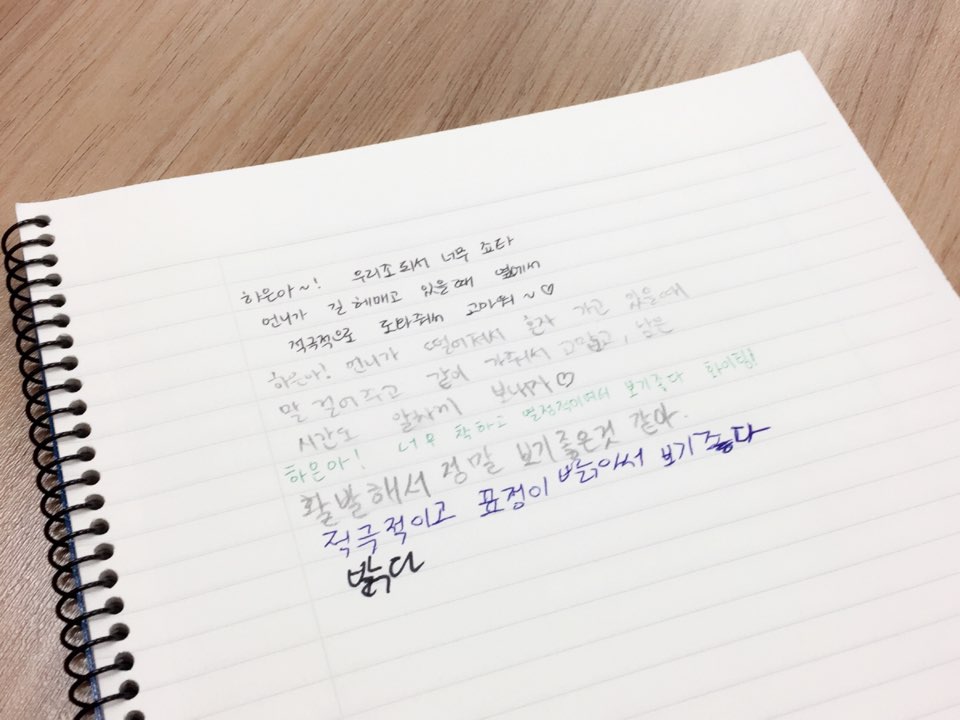 하은아~! 우리조 되서 너무 죠타
언니가 길 헤매고 있을때 옆에서
적극적으로 도와줘서 고마워~♡
하은아! 언니가 떨어져서 혼자 가고 있을때
말 걸어주고 같이 가줘서 고맙고, 남은
시간도 알차게 보내자♡
하은아! 너무 착하고 열정적이면서 보기좋다 화이팅!
활발해서 정말 보기좋은것 같아.
적극적이고 표정이 밝아서 보기좋다
밝다